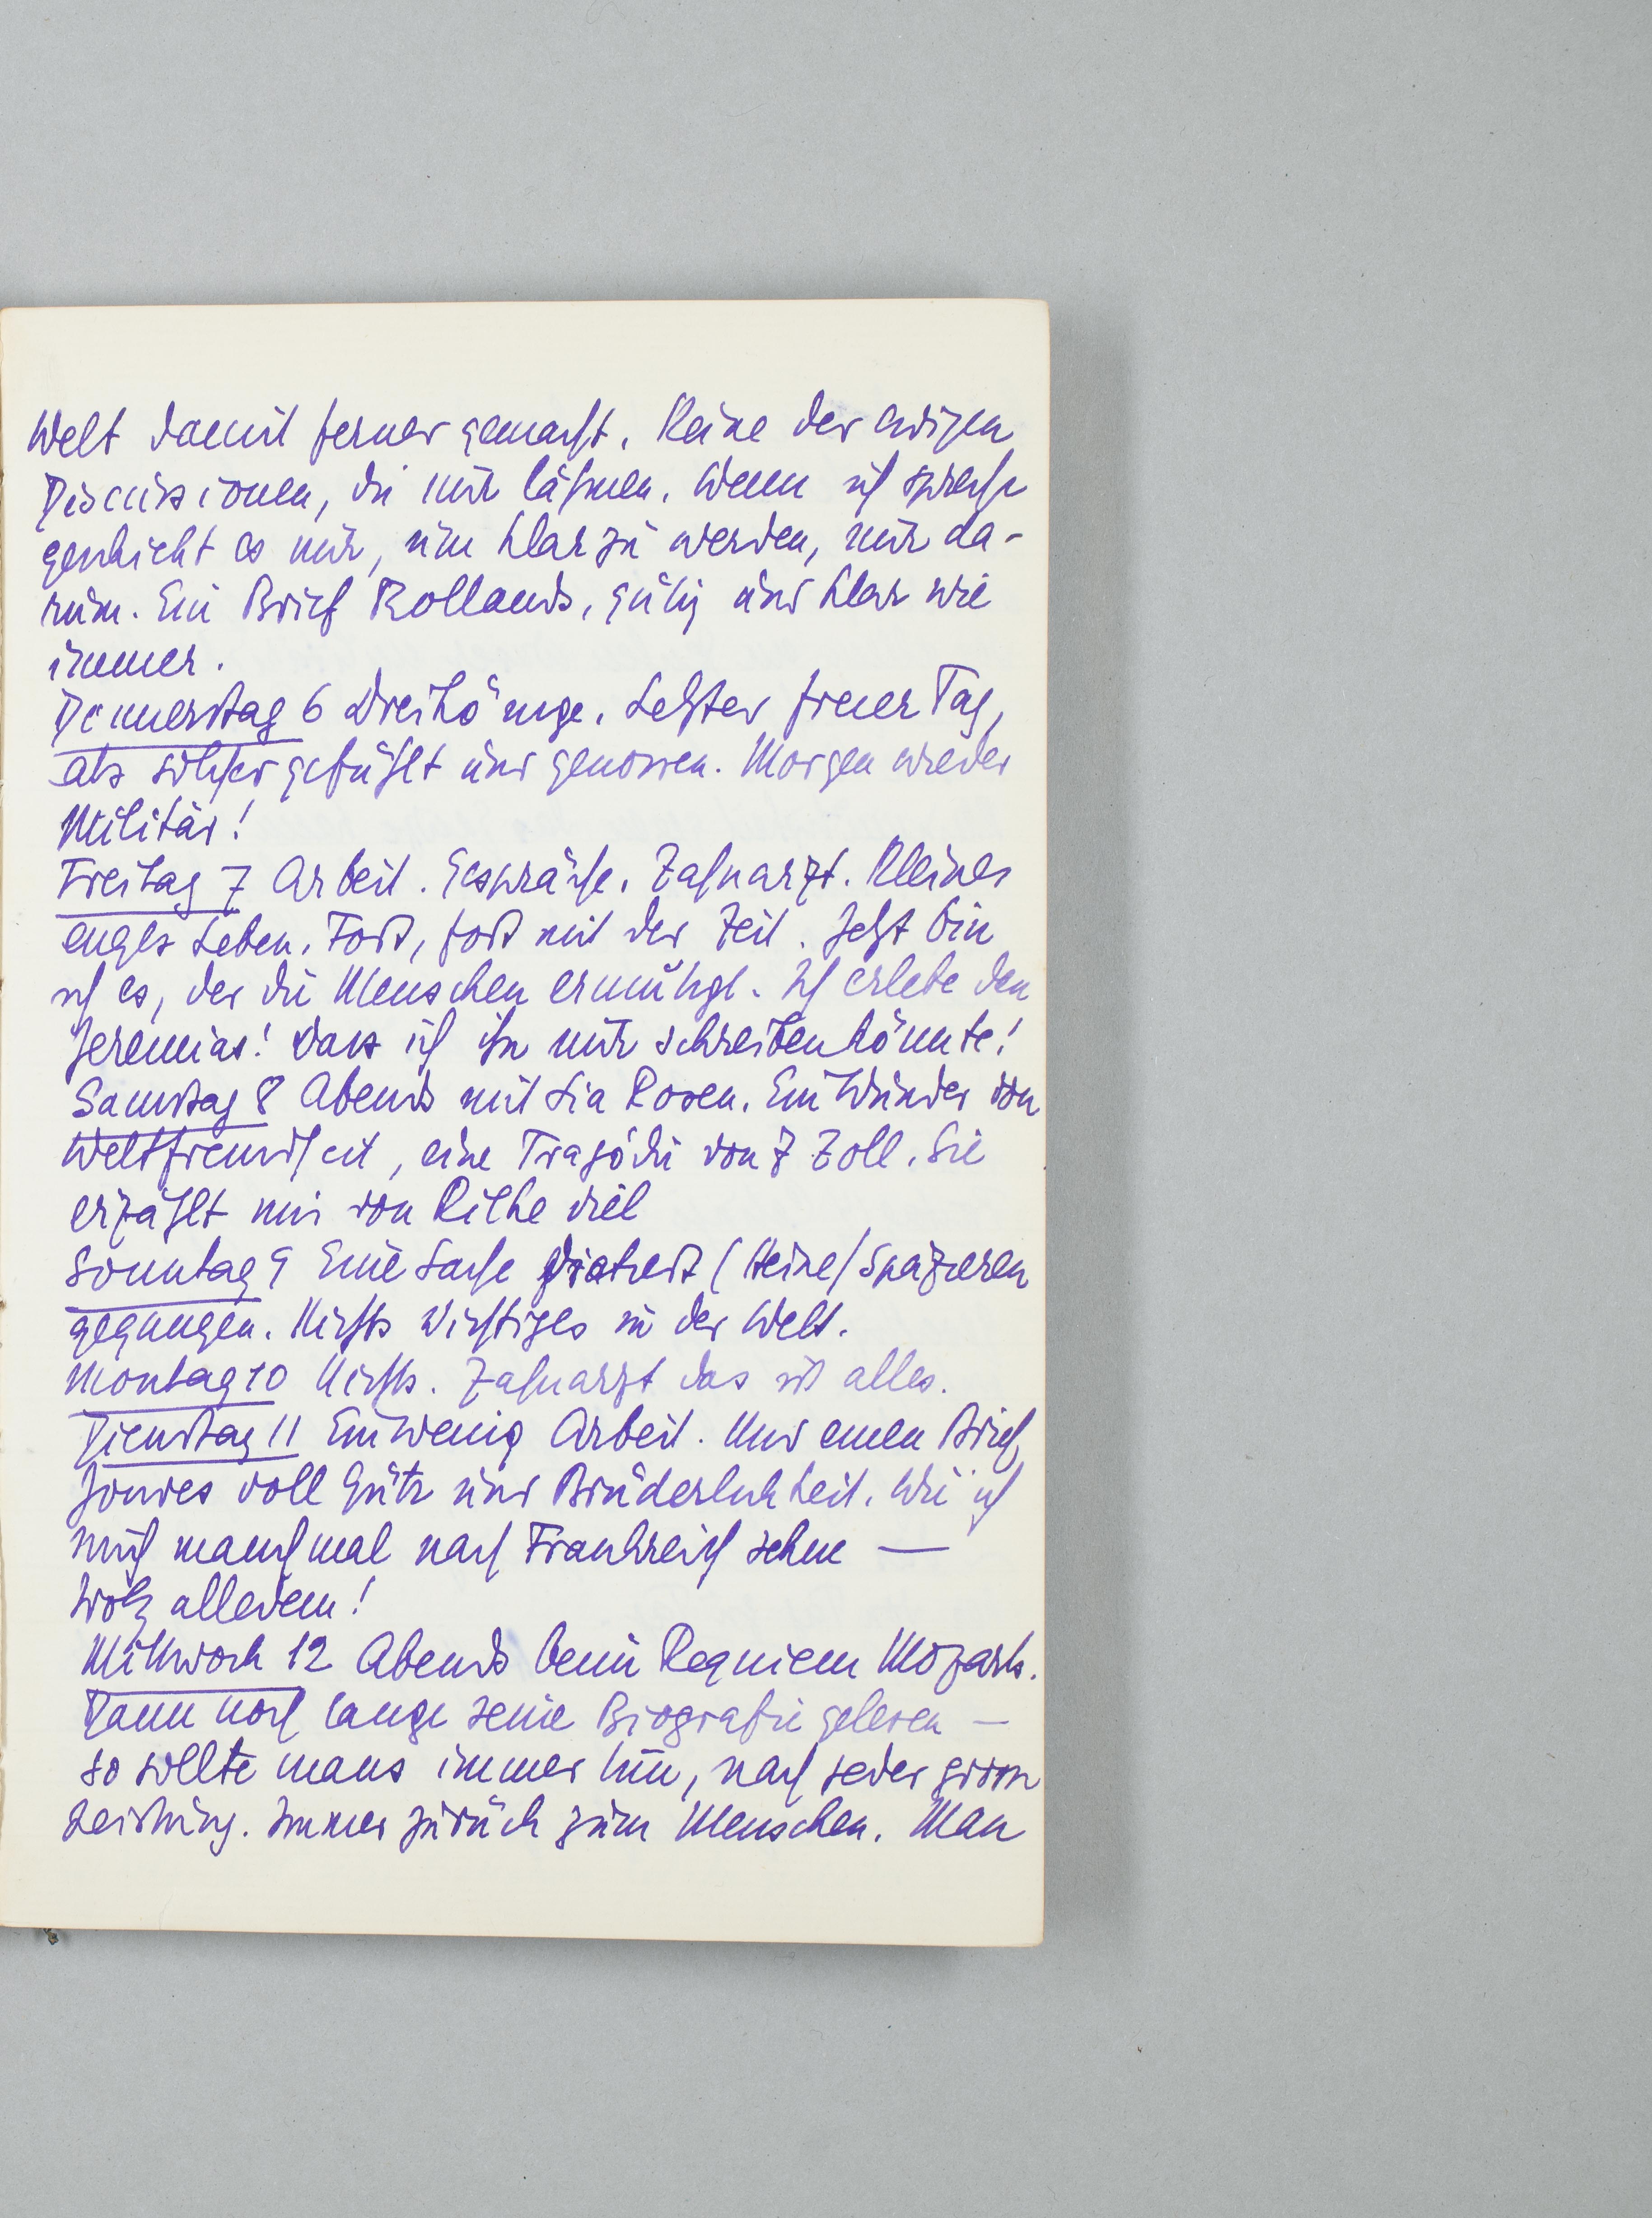 Welt damit ferner gemacht. Keine der ewigen
Discussionen, die nur lähmen. Wenn ich spreche
geschieht es nur, um klar zu werden, nur da-
rum. Ein Brief Rollands, gütig und klar wie
immer.
Donnerstag 6 Dreikönige. Letzter freier Tag,
als solcher gefühlt und genossen. Morgen wieder
Militär!
Freitag 7 Arbeit. Gespräche. Zahnarzt. Kleines
enges Leben. Fort, fort mit der Zeit. Jetzt bin
ich es, der die Menschen ermutigt. Ich erlebe den
Jeremias! Dass ich ihn nur schreiben könnte!
Samstag 8 Abends mit Lia Rosen. Ein Wunder von
Weltfremdheit, eine Tragödie von 7 Zoll. Sie
erzählt mir von Rilke viel
Sonntag 9 Eine Sache dictiert (Heine) Spazieren
gegangen. Nichts Wichtiges in der Welt.
Montag 10 Nichts. Zahnarzt das ist alles.
Dienstag 11 Ein wenig Arbeit. Und einen Brief
Jouves voll Güte und Brüderlichkeit. Wie ich
mich manchmal nach Frankreich sehne —
trotz alledem!
Mittwoch 12 Abends beim Requiem Mozarts.
Dann noch lange seine Biografie gelesen —
so sollte mans immer tun, nach jeder grossen
Leistung. Immer zurück zum Menschen. Man